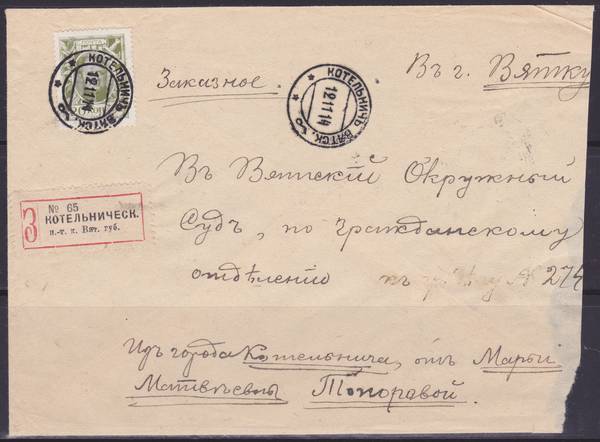 ПОЧТА
КОТЕЛЬНИЧЪ ВЯТСК.
12 11 14
КОТЕЛЬНИЧЪ ВЯТСК.
12 11 14
Заказное.
Въ г. Вятку
Въ Вятскій Окружный
Судъ, по гражданскому
отдѣленію къ № 274
З
№ 65
КОТЕЛЬНИЧЕСК.
п.-т. к. Вят. губ.
Изъ города Котельнича, отъ Марьи
Матвѣевны Топоравой.